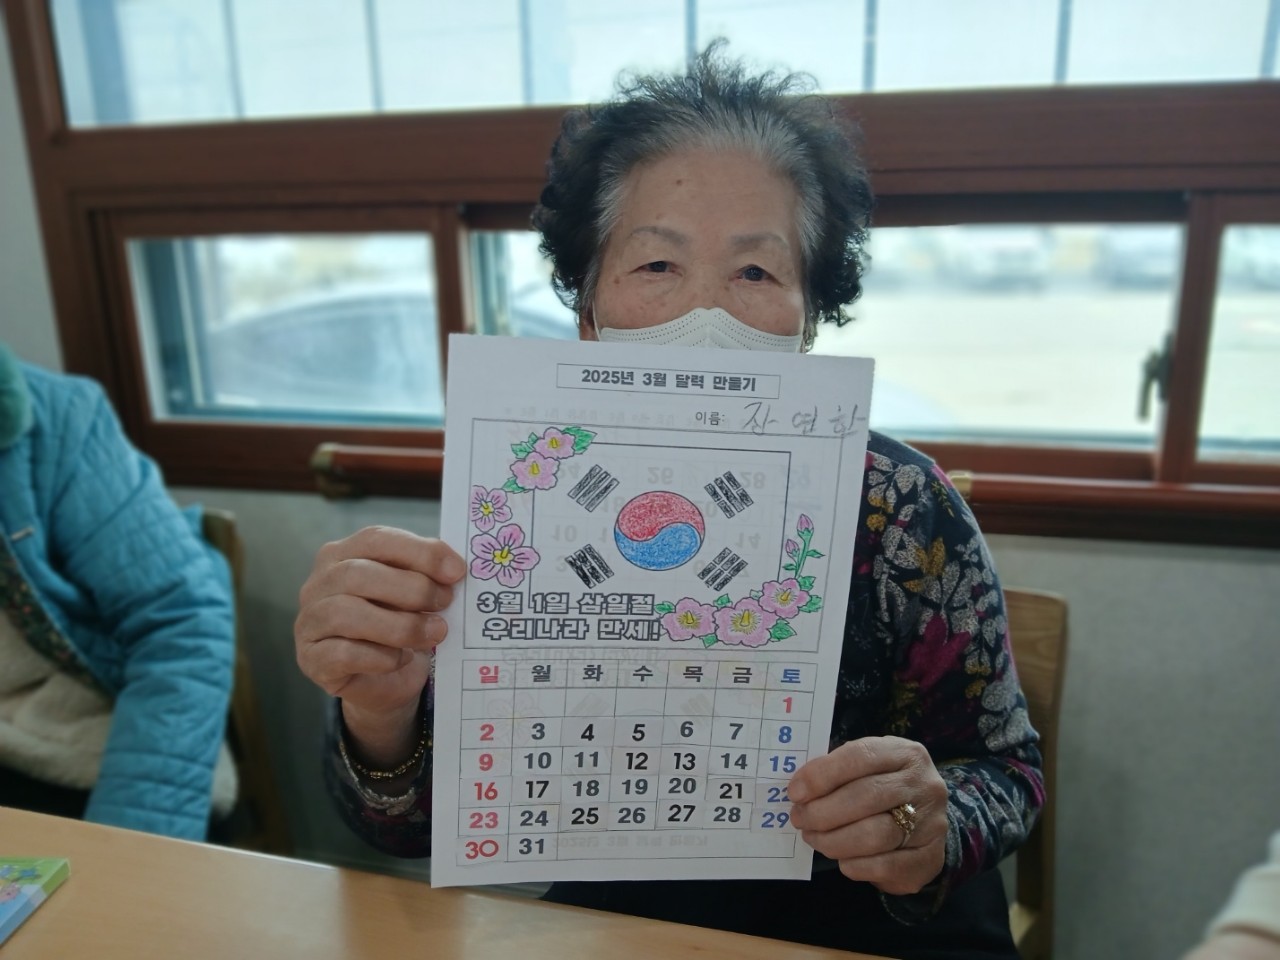 2025년 3월 달력 만들기
이름: 장 연 환
3월 1일 삼일절
우리나라 만세!
일 월 화 수 목 금 토
1
2 3 4 5 6 7 8
9 10 11 12 13 14 15
16 17 18 19 20 21 22
23 24 25 26 27 28 29
30 31